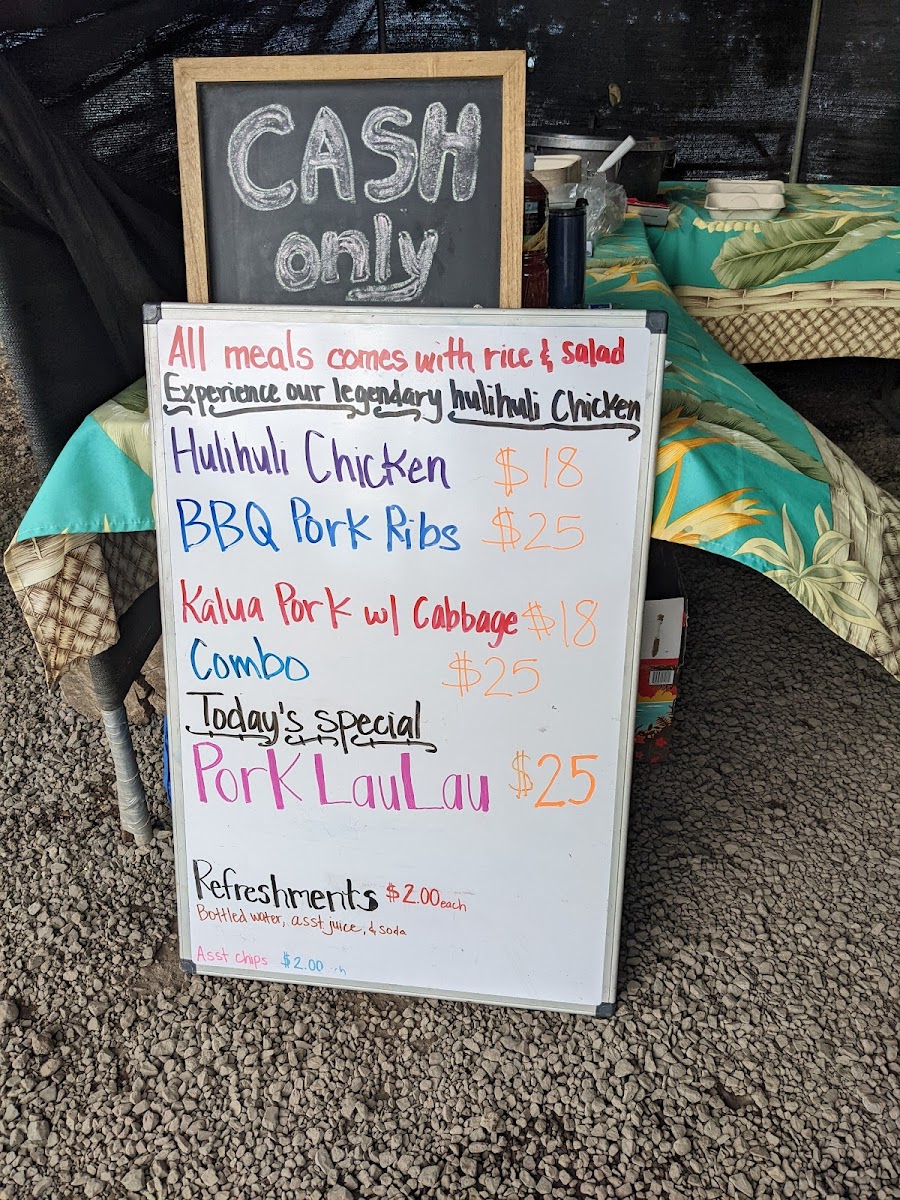 CASH
only
All meals comes with rice & salad
Experience our legendary hulihuli Chicken
Hulihuli Chicken $18
BBQ Pork Ribs $25
Kalua Pork w/ Cabbage $18
Combo $25
Today's special
Pork LauLau $25
Refreshments $2.00 each
Bottled water, asst juice, & soda
Asst chips $2.00